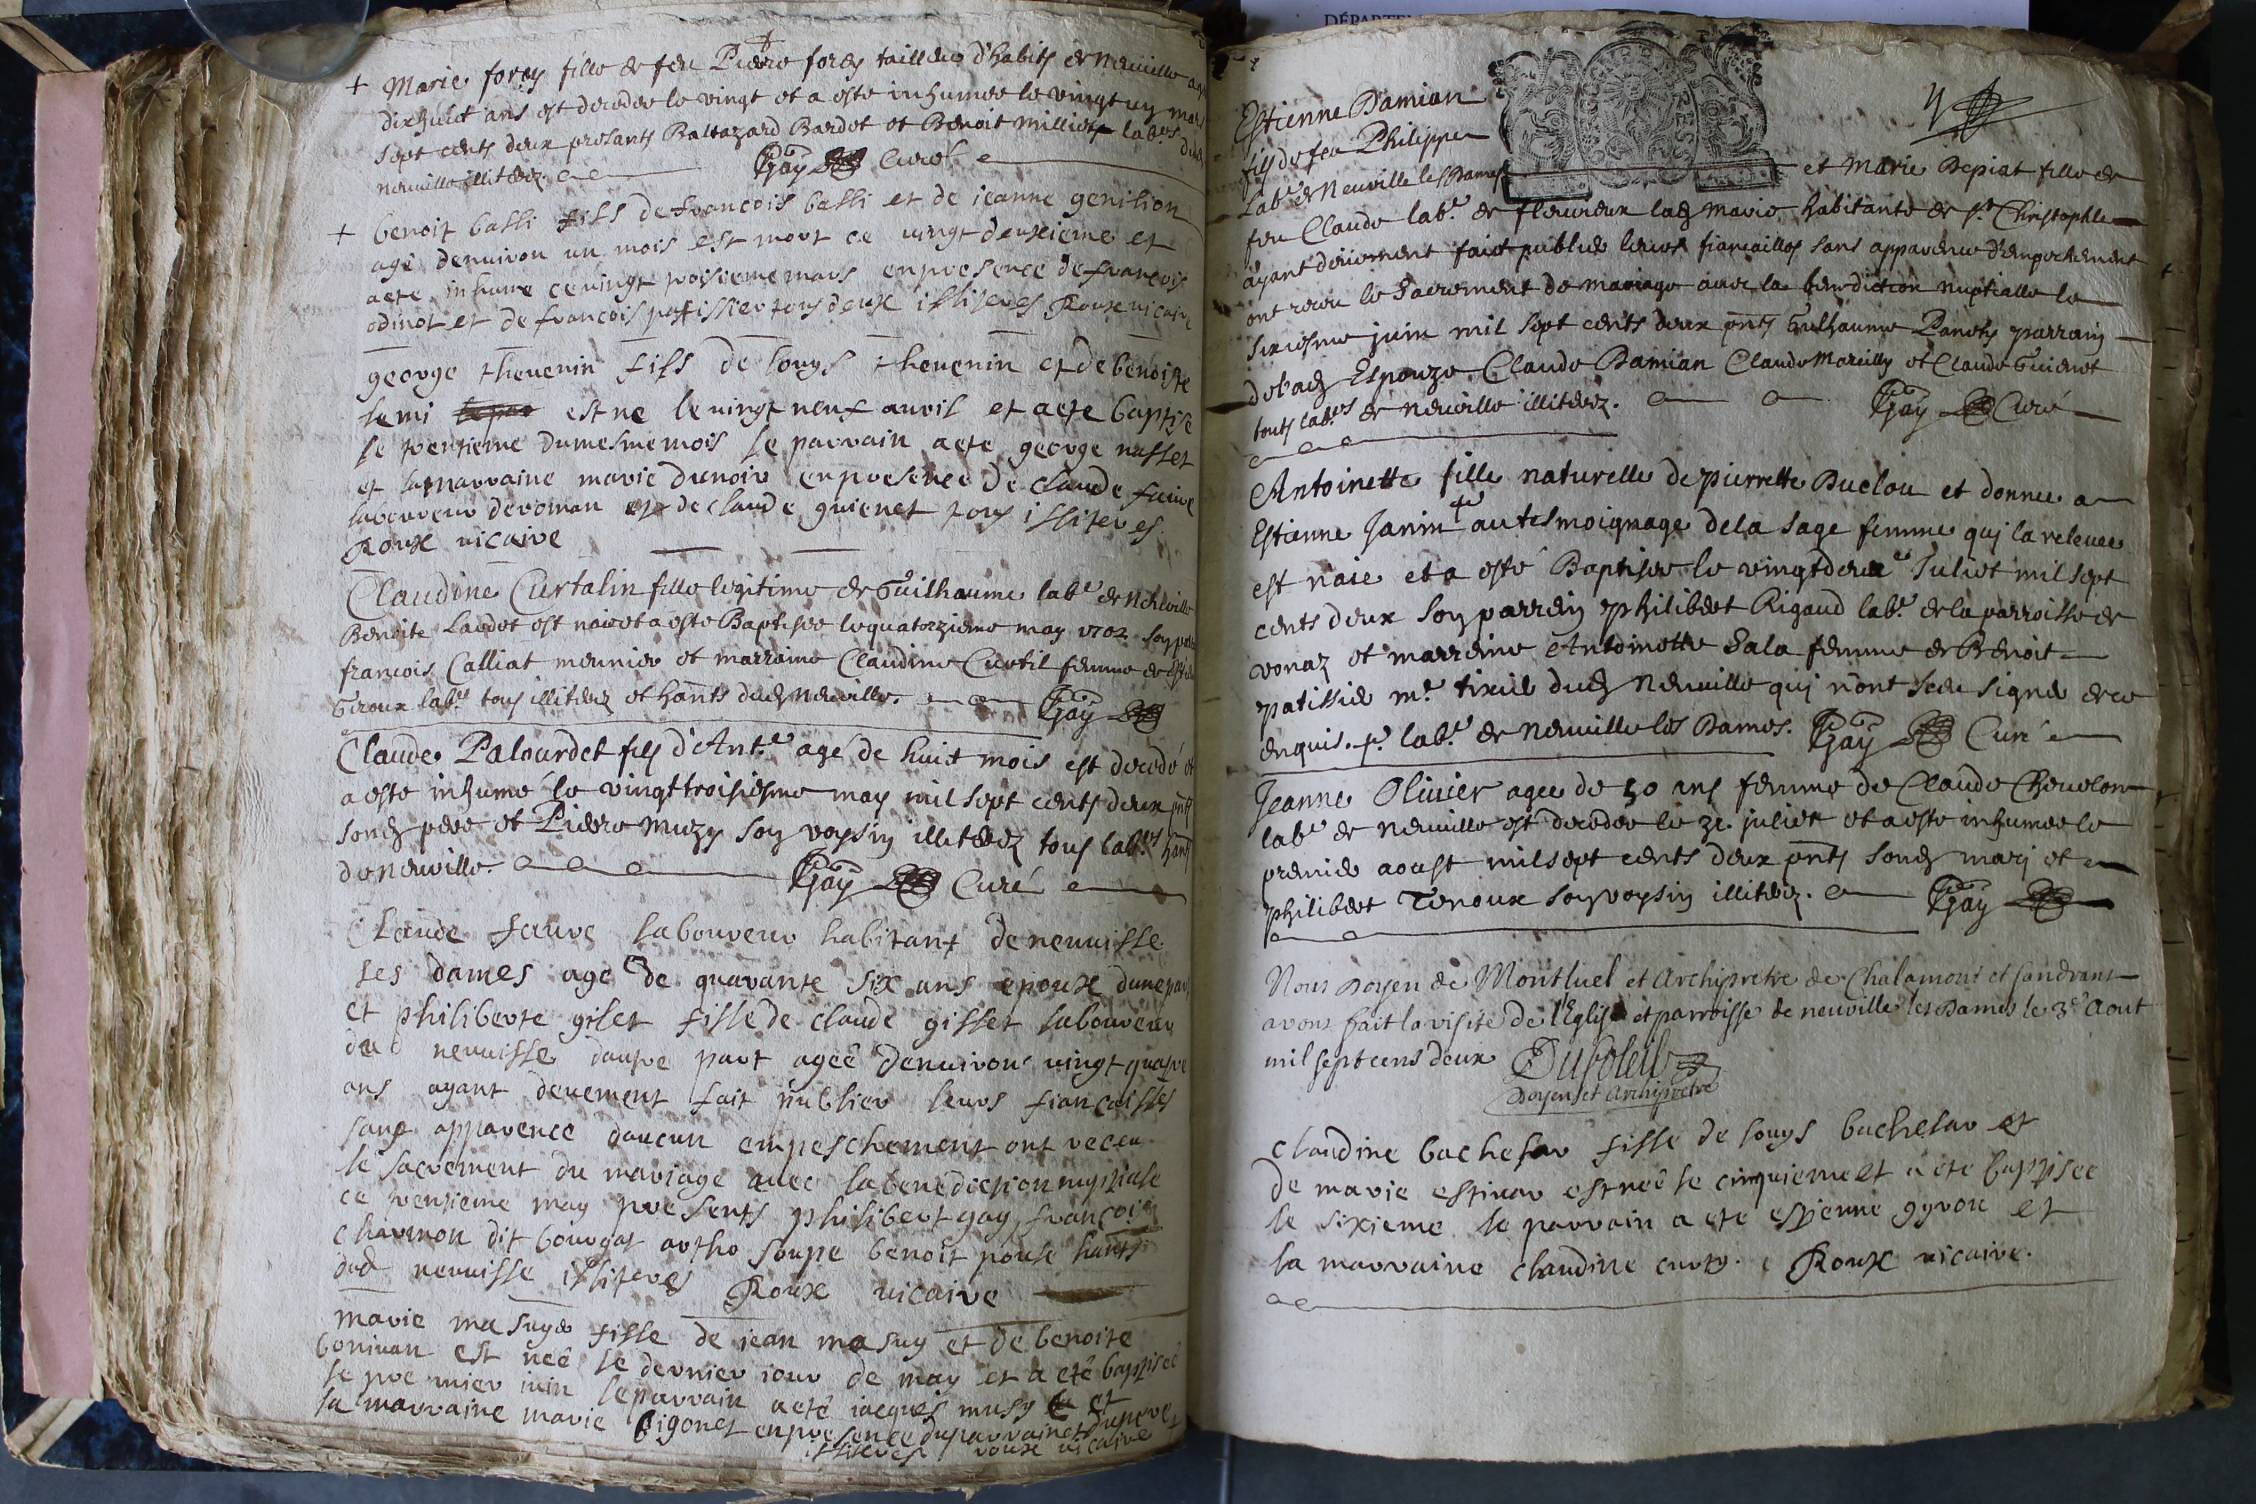 + Marie forey fille de feu Pierre forey tailleur d'habits de neuville
dixhuict ans est decedee le vingt et a esté inhumee le vingt un mars
sept cents deux presants Baltazard Bardet et Benoit Milliet lab.rs
neuville illiterez. Gay Curé
+ benoit balli fils de francois balli et de jeanne
agé denuiron un mois est mort ce uingt deuxieme et
aete inhumé ce uingt troisieme mars enpresence de francois
odinot et de francois patissier tous deux illiteres Roux uicaire
george theuenin fils de louys theuenin et de benoiste
lemi est ne le uingt neuf auril et aete baptise
le trentieme dumesme mois le parrain aete george
et la marraine marie dunoir enpresence de claude faure
laboureur deroman et de claude guienet tous illiteres
Roux uicaire
Claudine Curtalin fille legitime de Guilhaume lab.r de
Benoite Laudet est naie et a esté Baptisee le quatorzieme may 1702
francois Calliat meunier et marraine Claudine Curtil femme de
Geroux lab.r tous illiterez et hants dud neuville. Gay
Claude Palourdet fils d'Ant.e agé de huit mois est decedé et
a esté inhumé le vingttroisiesme may mil sept cents deux pnts
sond pere et Pierre Muzy son voysin illiterez tous lab.rs hants
de neuville. Gay Curé
Claude faure laboureur habitant de neuuille
les dames age de quarante six ans epoux dune part
et philiberte gilet fille de claude gillet laboureur
dud neuuille dautre part ageé denuiron uingt quatre
ans ayant deuement fait publier leurs fiancailles
sans apparence daucun empeschement ont receu
le sacrement du mariage auec la benediction nuptiale
ce trentieme may presents philibert gay francois
charmon dit bourgat artho soupe benoit
dud neuuille illiteres Roux uicaire
marie masuy fille de jean masuy et de benoite
boniuan est neé le dernier iour de may et a eté baptiseé
le premier iuin le parrain a eté iacques musy et
la marraine marie bigonet enpresence du parrain et du pere
illiteres roux uicaire
Estienne Damian
fils de feu Philippe
Lab.r de Neuville les Dames et Marie Depiat fille de
feu Claude lab.r de fleurieux lad marie habitante de s.t Christophle
ayant duement faict publier leurs fiancailles sans apparence d'empechement
ont receu le Sacrement de mariage avec la benediction nuptialle le
sixiesme juin mil sept cents deux pnts Guilhaume Panety parrain
de lad Espouze Claude Damian Claude Mareilly et Claude Guienet
touts lab.rs de neuville illiterez. Gay Curé
Antoinette fille naturelle de pierrette Buclou et donnee a
Estienne Janin au tesmoignage de la sage femme qui la relevee
est naie et a esté Baptisee le vingtdeux Juliet mil sept
cents deux son parrein philibert Rigaud lab.r de la parroisse de
vonaz et marreine Antoinette Sala femme de Benoit
patissier m.e tixier dud neuville qui n'ont sceu signer de ce
enquis. lab.r de neuville les Dames. Gay Curé
Jeanne Olivier agee de 50 ans femme de Claude Chevelon
lab.r de neuville est decedee le 31. juliet et a esté inhumee le
premier aoust mil sept cents deux pnts sond mari et
philibert Teroux son voysin illiterez. Gay
Nous Doyen de Montluel et Archipretre de Chalamont et Sandrans
avons fait la visite de l'Eglise et parroisse de neuville les Dames le 3.e Aout
mil sept cens deux Dusoleil
Doyen et Archipretre
claudine bachelar fille de louys bachelar et
de marie estiuar est neé le cinquieme et a ete baptisee
le sixieme le parrain a ete estienne gyron et
la marraine claudine curty. Roux uicaire.